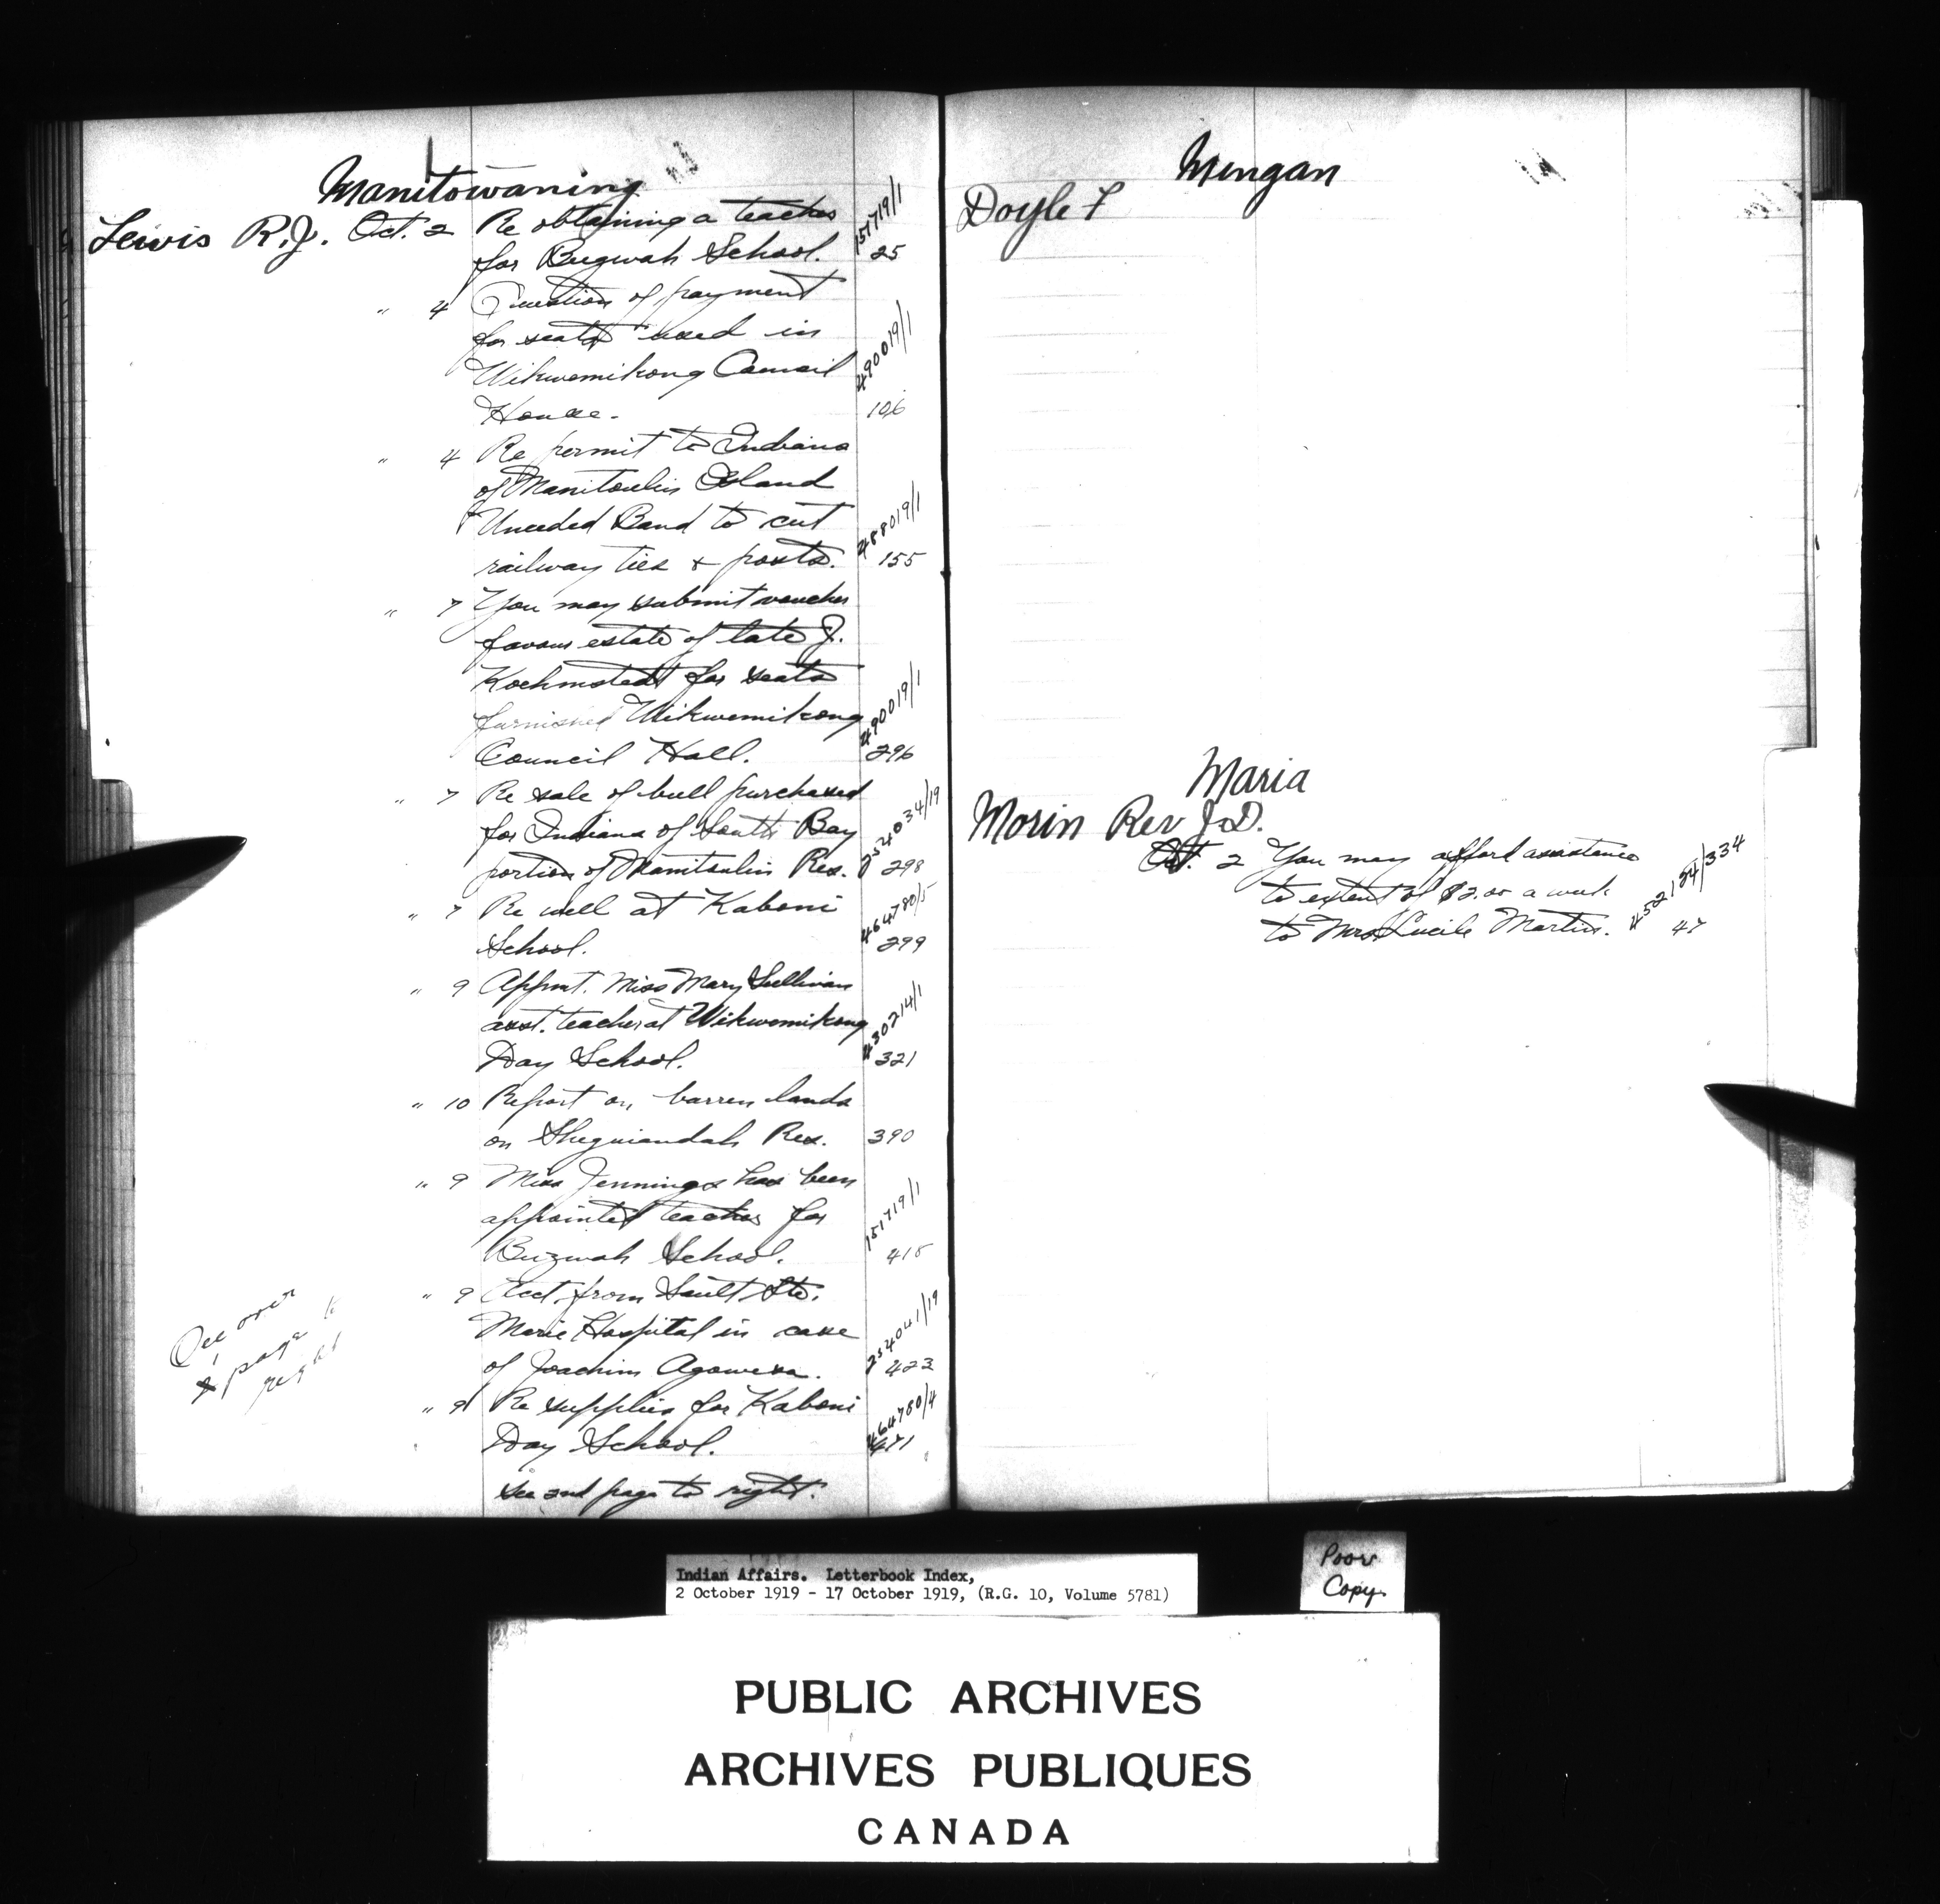 Manitowaning
Lewis R.J. Oct. 2 Re obtaining a teacher 151719/1
for Buzwah School. 25
" 4 Question of payment
for seats used in
Wikwemikong Council 490019/1
House. 106
" 4 Re permit to Indians
of Manitoulin Island
Unceded Band to cut 488019/1
railway ties & posts. 155
" 7 You may submit voucher
favour estate of late J.
Kochmstedt for seats
furnished Wikwemikong 490019/1
Council Hall. 296
" 7 Re sale of bull purchased
for Indians of South Bay 254034/19
portion of Manitoulin Res. 298
" 7 Re well at Kaboni 464780/5
School. 299
" 9 Appmt. Miss Mary Sullivan
asst. teacher at Wikwemikong 430214/1
Day School. 321
" 10 Report on barren lands
on Sheguiandah Res. 390
" 9 Miss Jennings has been
appointed teacher for 151719/1
Buzwah School. 418
" 9 Acct. from Sault Ste.
Marie Hospital in case 254041/19
of Joachim Agowissa. 423
" 9 Re supplies for Kaboni 464780/4
Day School. 471
see 2nd page to right.
See over
page to
right
Mingan
Doyle F
Maria
Morin Rev J.D.
Oct. 2 You may afford assistance
to extent of $2.00 a week 452124/334
to Mrs Lucile Martin. 47
Indian Affairs. Letterbook Index,
2 October 1919 - 17 October 1919, (R.G. 10, Volume 5781)
Poor
Copy.
PUBLIC ARCHIVES
ARCHIVES PUBLIQUES
CANADA